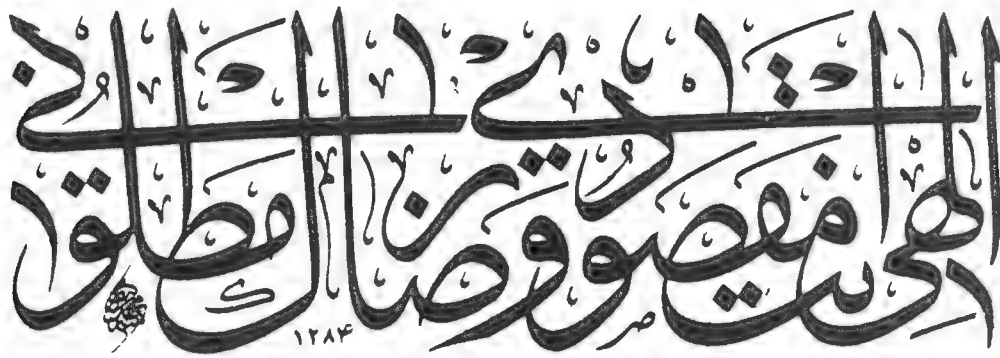 الهي انت مقصودي ورضاك مطلوبي
١٢٨٤